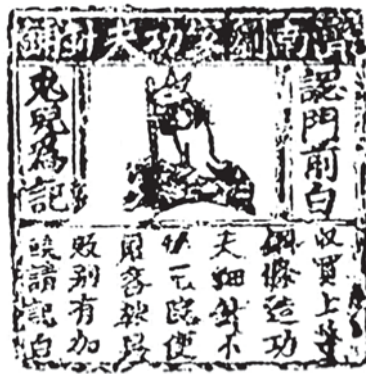 濟南劉家功夫針鋪
認門前白
兎兒爲記
收買上等
鋼條造功
夫細針不
宅院使
用客轉爲
販別有加
饒請記白